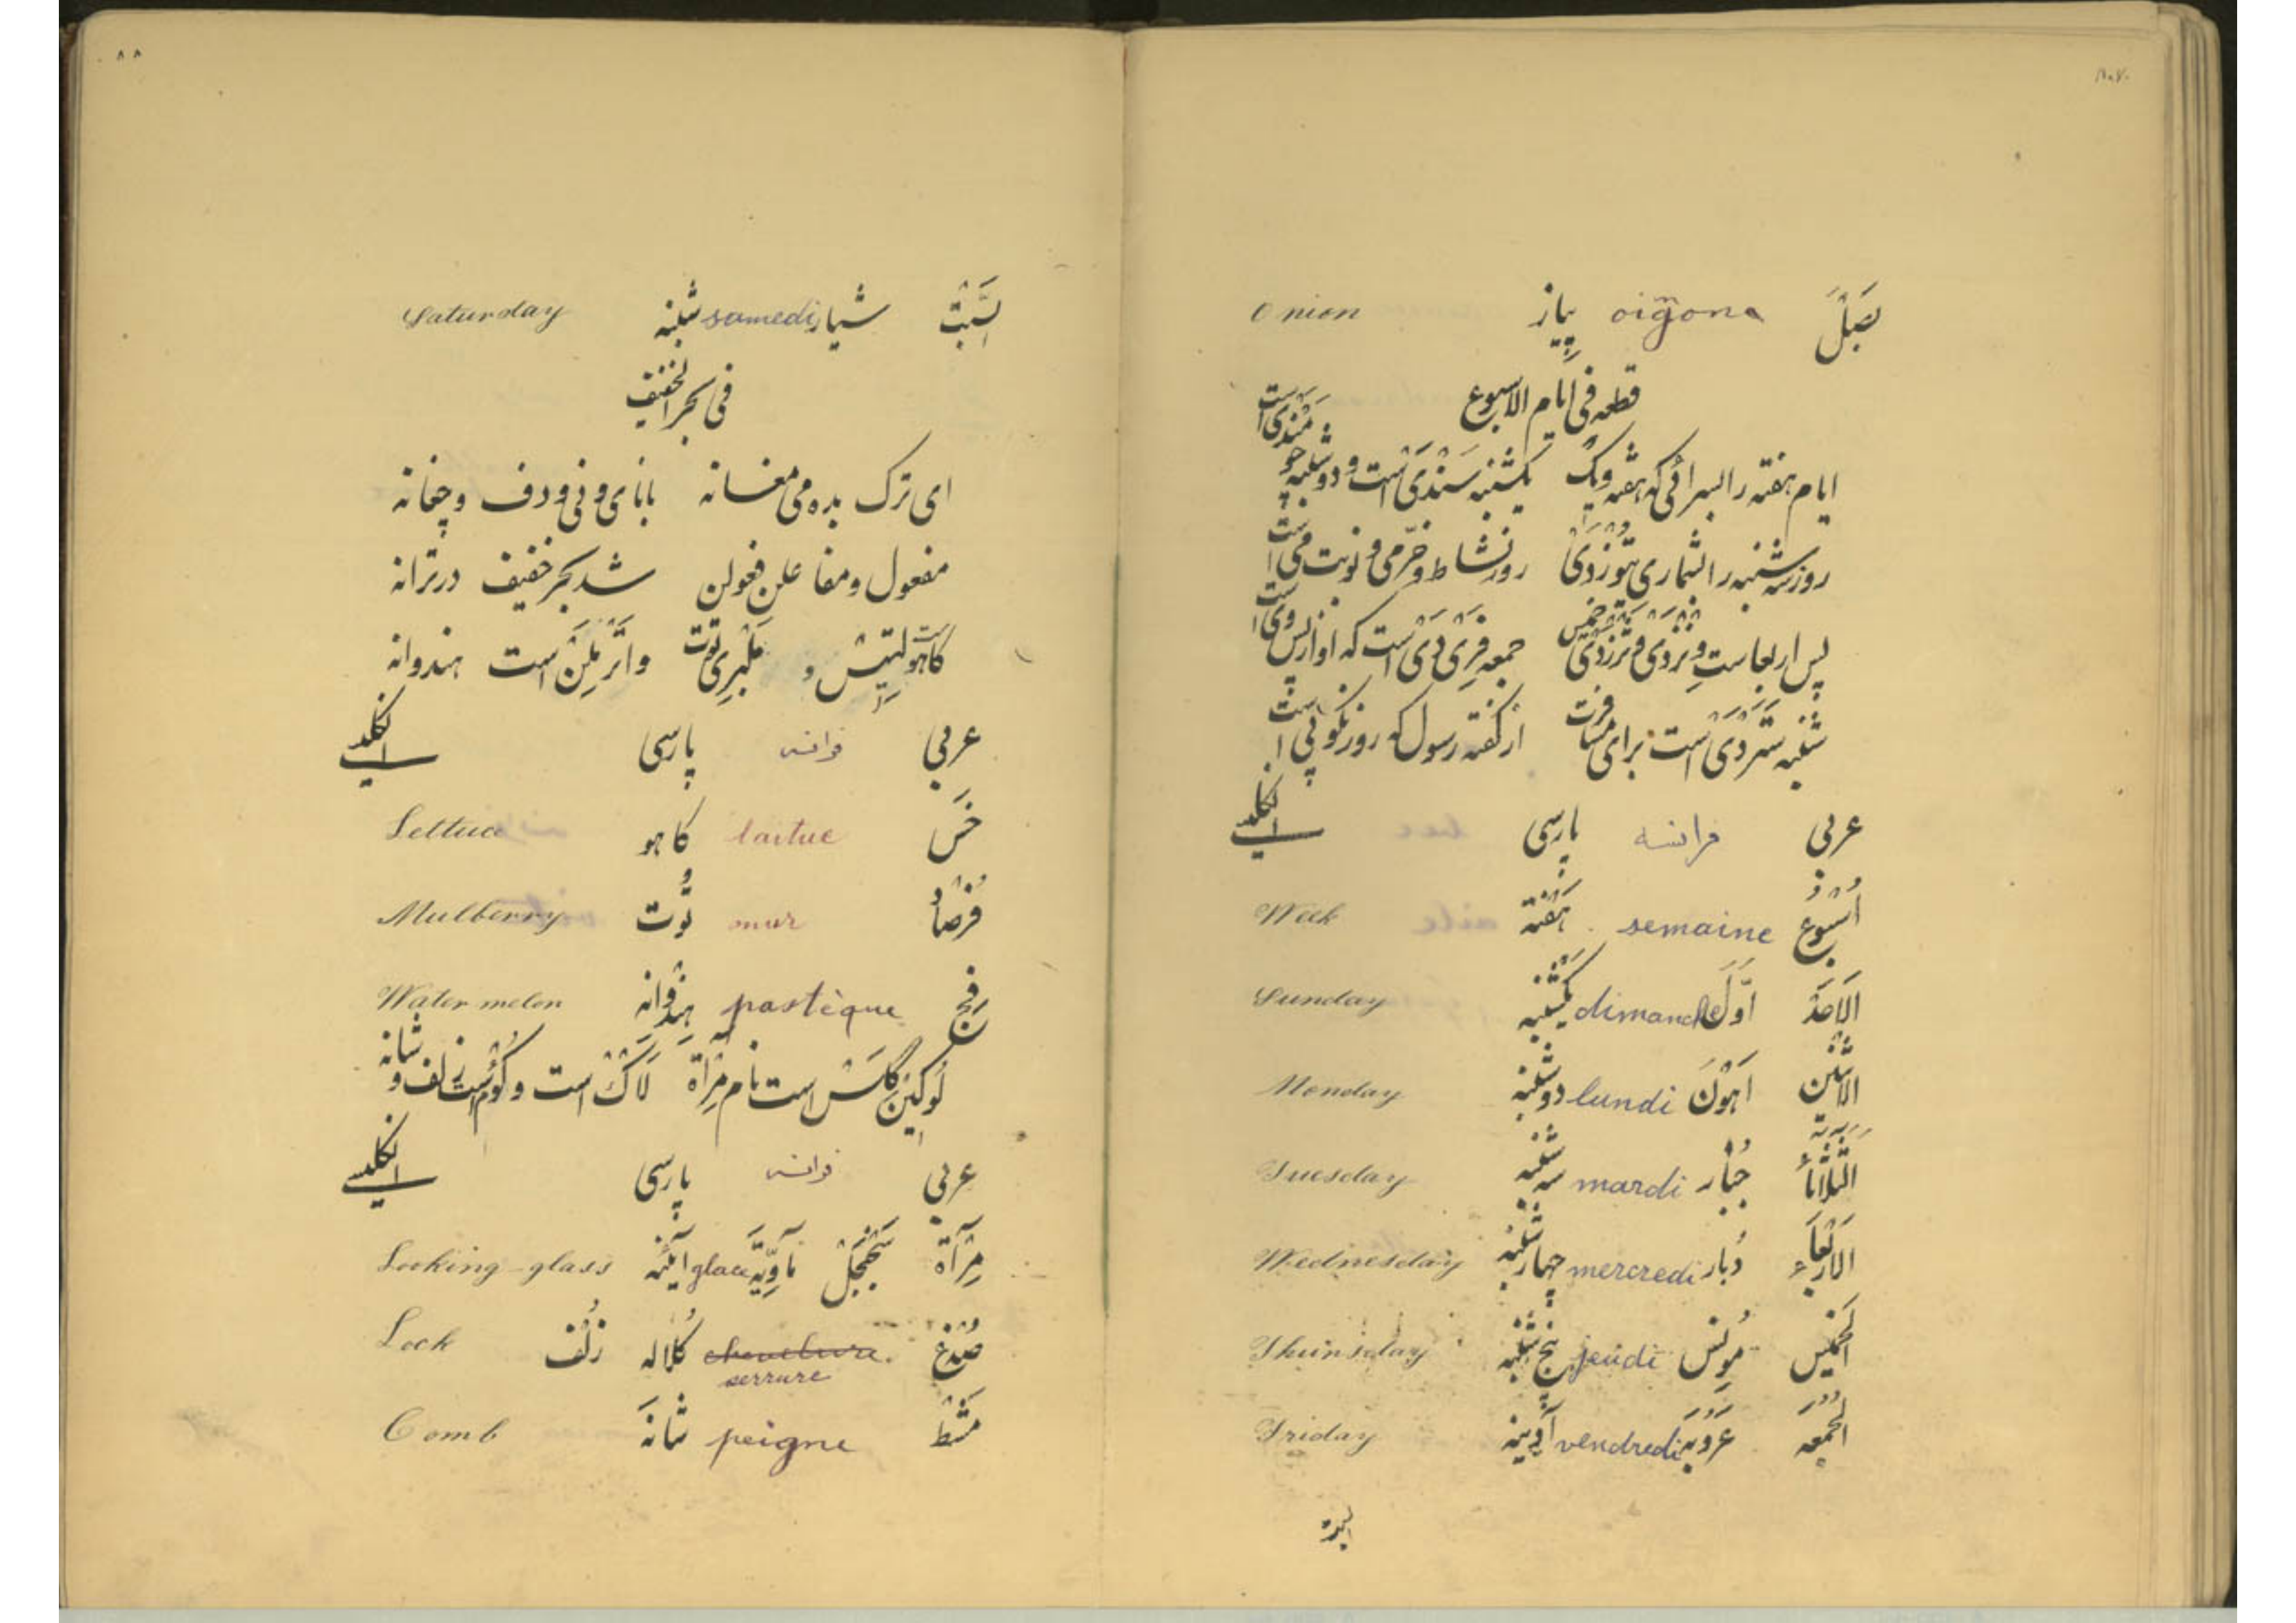 بَصَلٌ oigõona پِیاز Onion
قطعه فی ایام الاسبوع
ایام هفته را بسرائی که هفته ویک یکشنبه سَنْدَیْ است و دوشنبه چو مَنْدَی است
روز سه شنبه را شماری تُوزْدَیْ روز نشاط و خرّمی و نوبت می است
پس اربعاست وِنزْدَیْ و تَرزدَیْ خمیس جمعه فِرَیْ دَیْ است که او از پس وی است
شنبه سَتَردَیْ است برای مسافرت از گفته رسول که روز نکو پی است
عربی فرانسه پارسی انکلیسی
اُسْبُوع semaine هَفْته Week
اَلاَحَدْ اَوَّلَ dimanche یَکْشَنبه Sunday
الاَثْنَین اَهْوَنَ lundi دوشنبه Monday
الثَّلاثَاءُ جُبار mardi سه شنبه Tuesday
الاَرْبَعَاء دُبار mercredi چهارشنبه Wednesday
الخَمیس مُونِس jeudi پنج شنبه Thuirsday
الجُمُعَه عَرُوبَه vendredi آدینه Friday
السبت
٨٨
السَّبْتْ شیار samedi شنبه Saturday
فی بحر الخفیف
ای ترک بده می مغانه با نای و نی و دف و چغانه
مفعول و مفاعلن فعولن شد بحر خفیف در ترانه
کاهو لِتِیس است و مَلْبِری توُت واتَرْمِلِنْ است هندوانه
عربی فرانسه پارسی انکلیسی
خَس laitue کاهو Lettuce
فُرْصاد mur تُوت Mulberry
رَقِّی pastèque هِنْدُوانِه Water melon
لُوکِینْ گْلَسْ است نام مِرْآة لَاکْ است و کُوُم است زلف و شانه
عربی فرانسه پارسی انکلیسی
مِرْآة سَجَنْجَلْ مَاَوِیَّه glace آینه Looking-glass
صُدْغ chevelure serrure کُلاله زُلْف Lock
مَشْط peigne شانَه Comb